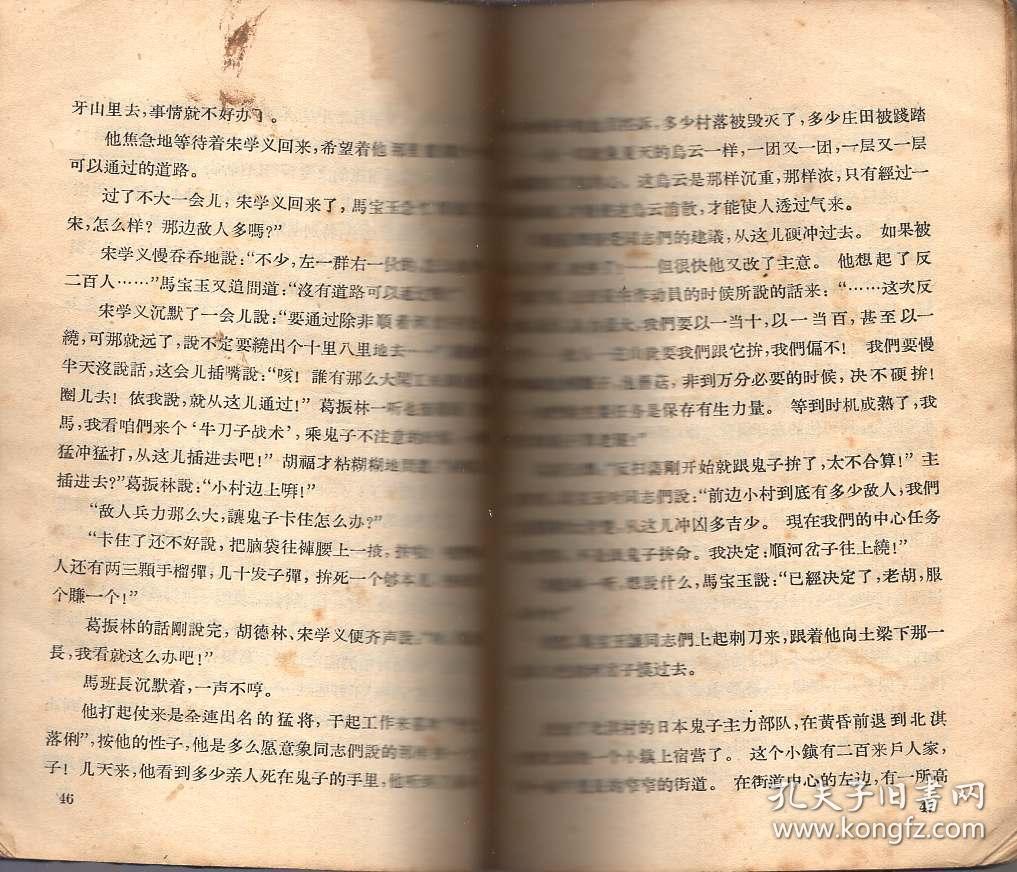 牙山里去，事情就不好办了。
他焦急地等待着宋学义回来，希望着他那里
可以通过的道路。
过了不大一会儿，宋学义回来了，馬宝玉急
宋，怎么样？那边敌人多嗎？”
宋学义慢吞吞地說：“不少，左一群右一伙
二百人……”馬宝玉又追問道：“沒有道路可以通过
宋学义沉默了一会儿說：“要通过除非順着
繞，可那就远了，說不定要繞出个十里八里地去
半天沒說話，这会儿插嘴說：“咳！誰有那么大閑工
圈儿去！依我說，就从这儿通过！”葛振林一听也
馬，我看咱們来个‘牛刀子战术’，乘鬼子不注意的
猛冲猛打，从这儿插进去吧！”胡福才粘糊糊地問道
插进去？”葛振林說：“小村边上啊！”
“敌人兵力那么大，讓鬼子卡住怎么办？”
“卡住了还不好說，把脑袋往褲腰上一掖，
人还有两三顆手榴彈，几十发子彈，拚死一个够本儿
个賺一个！”
葛振林的話剛說完，胡德林、宋学义便齐声說：
長，我看就这么办吧！”
馬班長沉默着，一声不哼。
他打起仗来是全連出名的猛将，干起工作来
落俐”，按他的性子，他是多么愿意象同志們說的那样
子！几天来，他看到多少亲人死在鬼子的手里，他听
46
訴，多少村落被毁灭了，多少庄田被踐踏
夏天的烏云一样，一团又一团，一层又一层
心。这烏云是那样沉重，那样浓，只有經过一
这烏云消散，才能使人透过气来。
同志們的建議，从这儿硬冲过去。如果被
——但很快他又改了主意。他想起了反
作动員的时候所說的話来：“……这次反
大，我們要以一当十，以一当百，甚至以一
就要我們跟它拚，我們偏不！我們要慢
蘑菇，非到万分必要的时候，决不硬拚！
任务是保存有生力量。等到时机成熟了，我
“反扫蕩剛开始就跟鬼子拚了，太不合算！”主
同志們說：“前边小村到底有多少敌人，我們
从这儿冲凶多吉少。現在我們的中心任务
不是跟鬼子拚命。我决定：順河岔子往上繞！”
一听，想說什么，馬宝玉說：“已經决定了，老胡，服
讓同志們上起刺刀来，跟着他向土梁下那一
摸过去。
北淇村的日本鬼子主力部队，在黄昏前退到北淇
一个小鎮上宿营了。这个小鎮有二百来戶人家，
窄窄的街道。在街道中心的左边，有一所高
47
孔夫子旧書网
www.kongfz.com